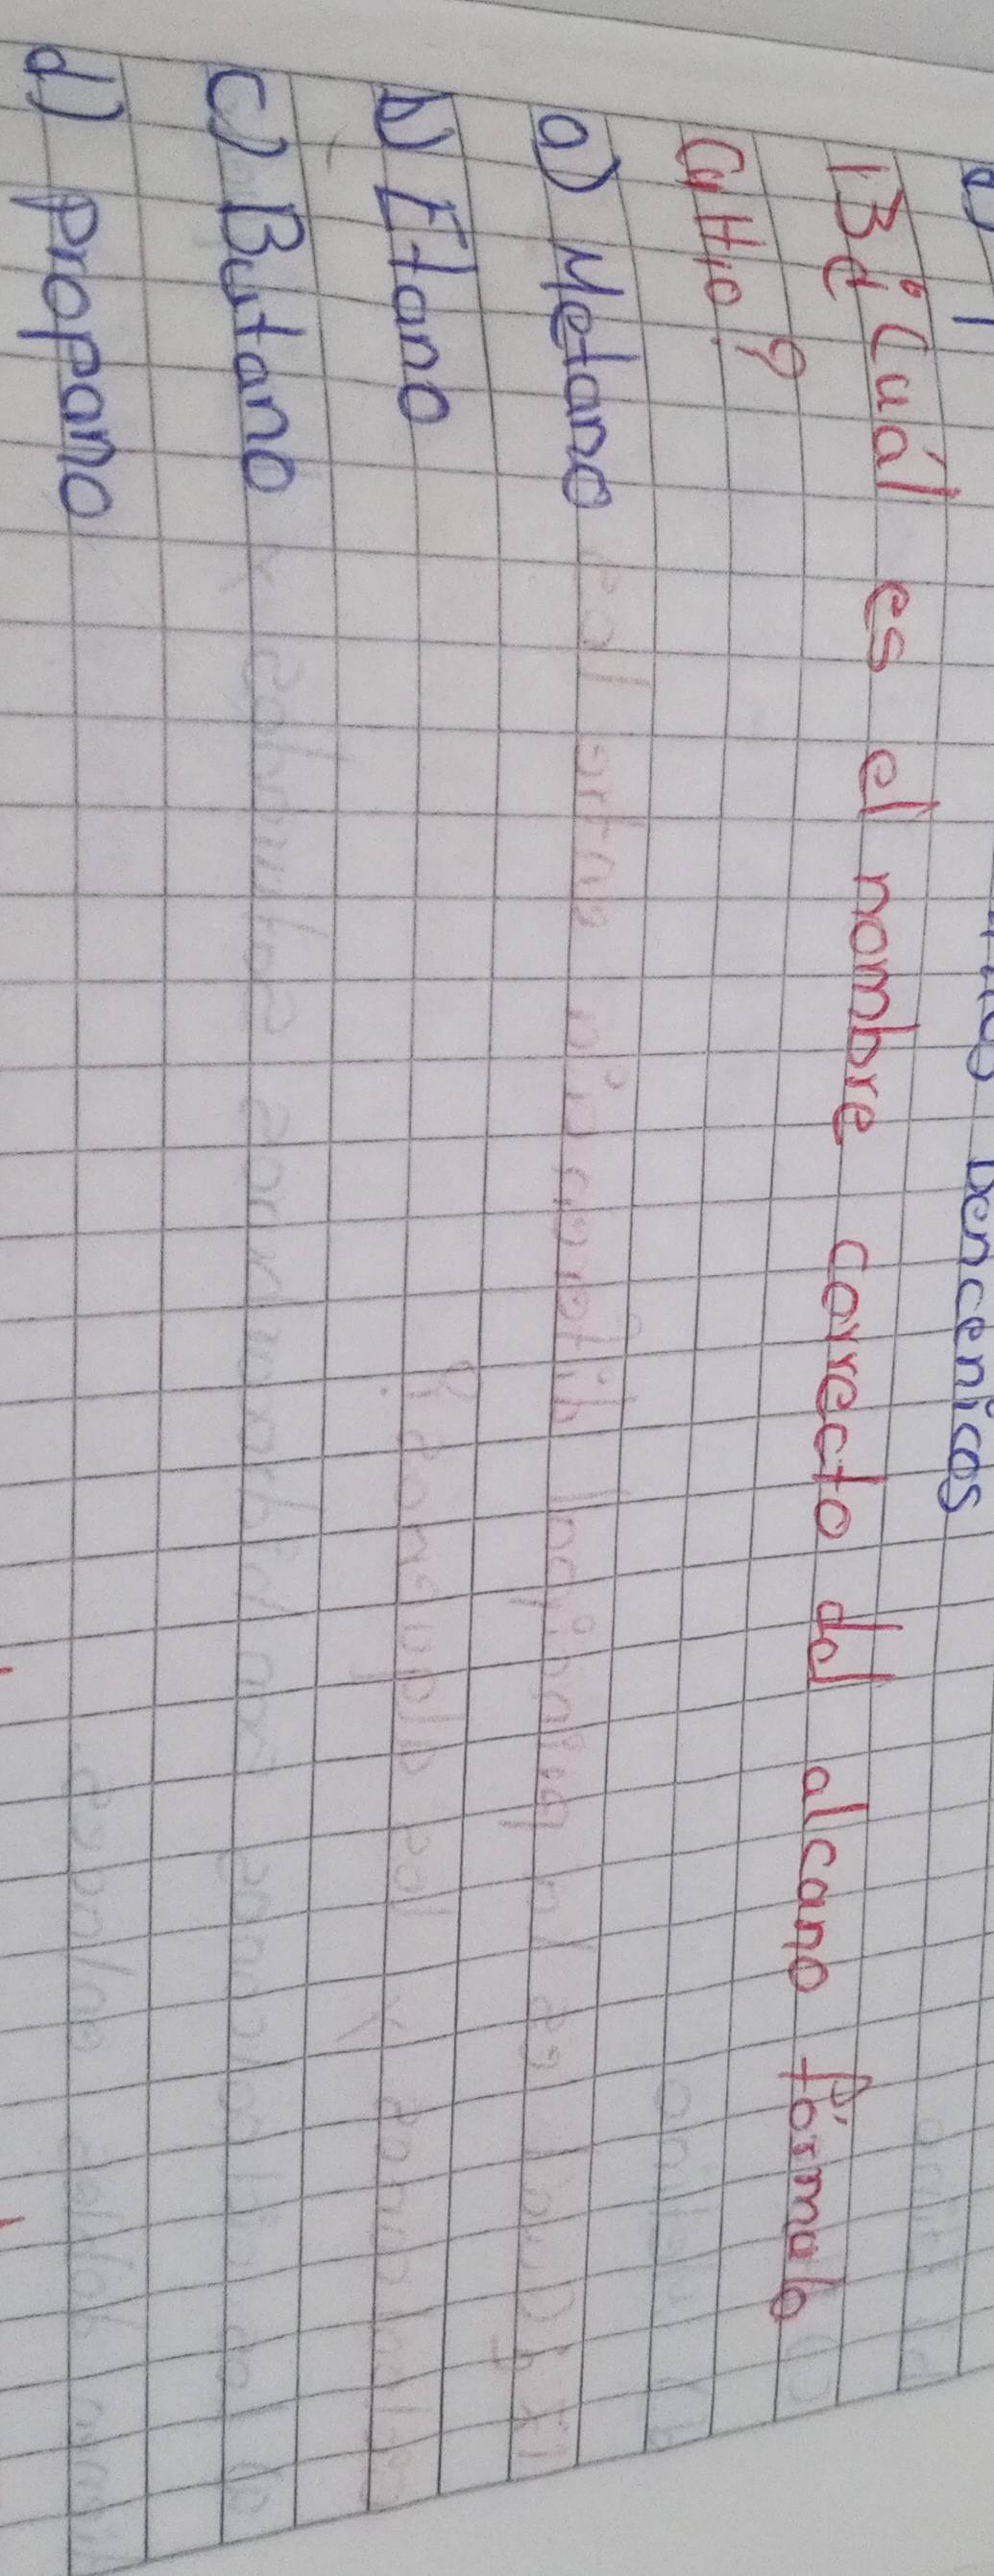 Bencenicos
13¿ Cuál es el nombre correcto del alcano fórmula
C4H10?
a) Metano
b) Etano
c) Butano
d) propano